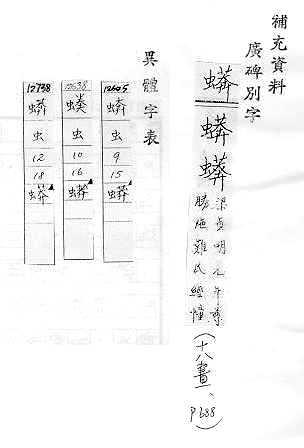 補充資料
廣碑別字
蟒
蟒
蟒
梁貞明九年尊
勝陁羅尼經幢
(十八畫、
P688
異體字表
12738 12638 12605
蟒 蟒 蟒
虫 虫 虫
12 10 9
18 16 15
蟒 蟒 蟒